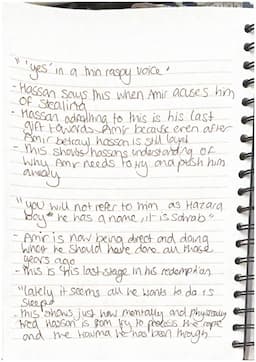 "'yes' in a thin raspy voice"
- Hassan says this when Amir acuses him
of stealing
- Hassan admitting to this is his last
gift towards Amir because even after
Amir betrayl hassan is still loyal
- This shows hassans understanding of
why Amir needs to try and push him
away
"you will not refer to him as Hazara
boy" he has a name, it is sohrab"
- Amir is now being direct and doing
what he should have done all those
years ago
- This is his last stage in his redemption
"lately it seems all he wants to do is
sleep"
- this shows just how mentally and physically
tired Hassan is from try to process the rape
and the trauma he has been though